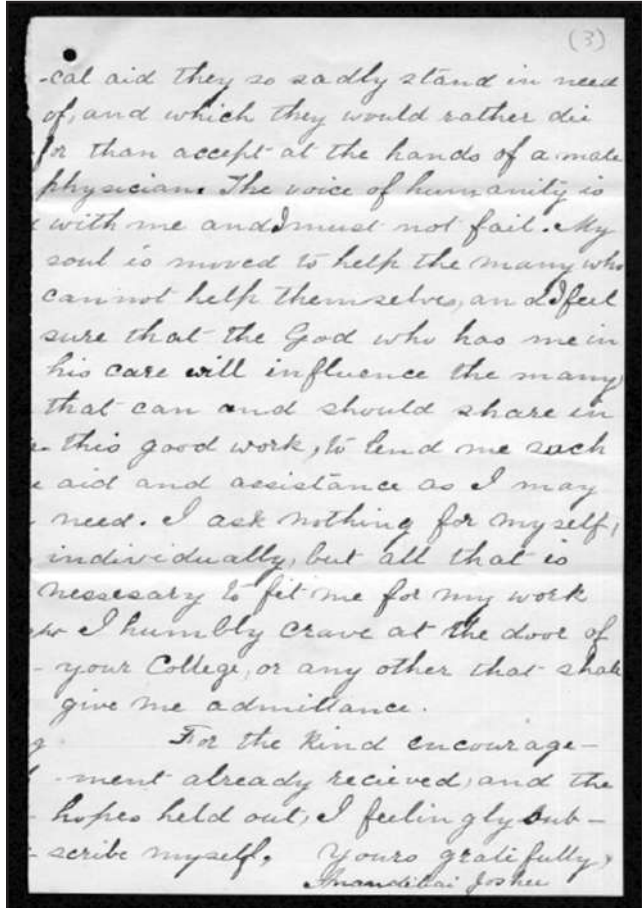 (3)
-cal aid they so sadly stand in need
of, and which they would rather die
for than accept at the hands of a male
physician. The voice of humanity is
with me and I must not fail. My
soul is moved to help the many who
cannot help themselves, and I feel
sure that the God who has me in
his care will influence the many
that can and should share in
this good work, to lend me such
aid and assistance as I may
need. I ask nothing for myself,
individually, but all that is
nessesary to fit me for my work
I humbly crave at the door of
your College, or any other that shall
give me admittance.
For the kind encourage-
-ment already recieved, and the
hopes held out, I feelingly sub-
scribe myself, Yours gratifully,
Anandibai Joshee